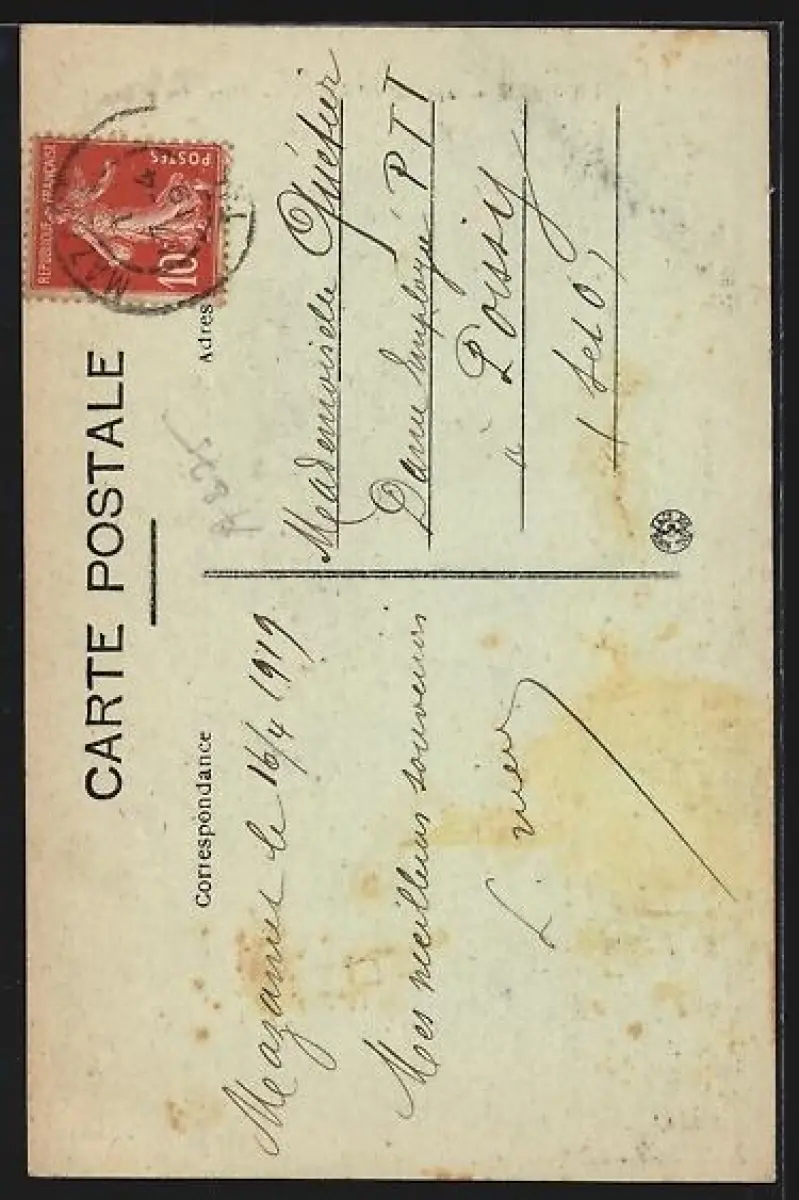 CARTE POSTALE
Correspondance
Adres
REPUBLIQUE FRANÇAISE
POSTES
10
MAZ
Mazamet le 16/4 1919
Mes meilleurs souvenirs
L.
Mademoiselle Quéfier
Dame Employée PTT
à Poissy
S et O